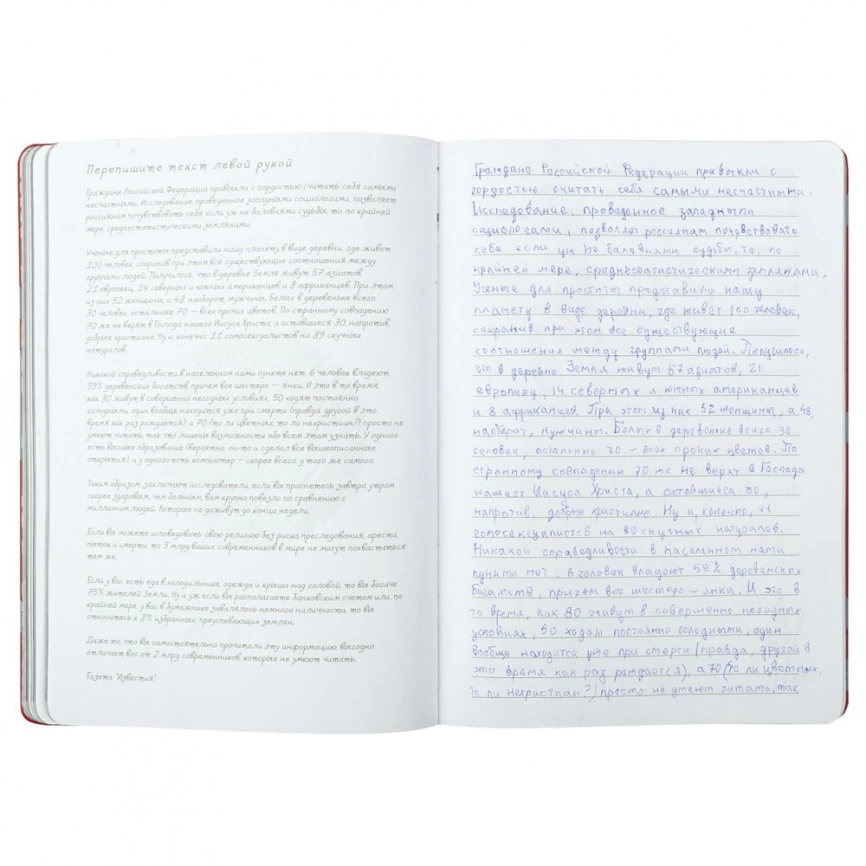 Перепишите текст левой рукой
Граждане Российской Федерации привыкли с гордостью считать себя самыми
несчастными. Исследование, проведенное западными социологами, позволяет
россиянам почувствовать себя если уж не баловнями судьбы, то, по крайней
мере, среднестатистическими землянами.
Ученые для простоты представили нашу планету в виде деревни, где живет
100 человек, сохранив при этом все существующие соотношения между
группами людей. Получилось, что в деревне Земля живут 57 азиатов,
21 европеец, 14 северных и южных американцев и 8 африканцев. При этом
из них 52 женщины, а 48, наоборот, мужчины. Белых в деревеньке всего
30 человек, остальные 70 — всех прочих цветов. По странному совпадению
70 же не верят в Господа нашего Иисуса Христа, а оставшиеся 30, напротив,
добрые христиане. Ну и, конечно, 11 гомосексуалистов на 89 скучных
натуралов.
Никакой справедливости в населенном нами пункте нет: 6 человек владеют
59% деревенских богатств, причем все шестеро — янки. И это в то время,
как 80 живут в совершенно негодных условиях, 50 ходят постоянно
голодными, один вообще находится уже при смерти (правда, другой в это
время как раз рождается), а 70 (то ли цветных, то ли нехристиан?) просто не
умеют читать, так что лишены возможности обо всем этом узнать. У одного
есть высшее образование (вероятно, он-то и сделал все вышеописанные
открытия), и у одного есть компьютер — скорее всего, у того же самого.
Таким образом, заключают исследователи, если вы проснетесь завтра утром
скорее здоровым, чем больным, вам крупно повезло по сравнению с
миллионом людей, которые не доживут до конца недели.
Если вы можете исповедовать свою религию без риска преследования, ареста,
пыток и смерти, то 3 млрд ваших современников в мире не могут похвастаться
тем же.
Если у вас есть еда в холодильнике, одежда и крыша над головой, то вы богаче
75% жителей Земли. Ну а уж если вы располагаете банковским счетом или, по
крайней мере, у вас в бумажнике завалялось немного наличности, то вы
относитесь к 8% избранных, преуспевающих землян.
Даже то, что вы самостоятельно прочитали эту информацию, выгодно
отличает вас от 2 млрд современников, которые не умеют читать.
Газета "Известия"
Граждане Российской Федерации привыкли с
гордостью считать себя самыми несчастными.
Исследование, проведенное западными
социологами, позволяет россиянам почувствовать
себя если уж не баловнями судьбы, то, по
крайней мере, среднестатистическими землянами.
Ученые для простоты представили нашу
планету в виде деревни, где живёт 100 человек,
сохранив при этом все существующие
соотношения между группами людей. Получилось,
что в деревне Земля живут 57 азиатов, 21
европеец, 14 северных и южных американцев
и 8 африканцев. При этом из них 52 женщины, а 48,
наоборот, мужчины. Белых в деревеньке всего 30
человек, остальные 70 – всех прочих цветов. По
странному совпадению 70 же не верят в Господа
нашего Иисуса Христа, а оставшиеся 30,
напротив, добрые христиане. Ну и, конечно, 11
гомосексуалистов на 89 скучных натуралов.
Никакой справедливости в населенном нами
пункте нет: 6 человек владеют 59% деревенских
богатств, причем все шестеро – янки. И это в
то время, как 80 живут в совершенно негодных
условиях, 50 ходят постоянно голодными, один
вообще находится уже при смерти (правда, другой в
это время как раз рождается), а 70 (то ли цветных,
то ли нехристиан?) просто не умеют читать, так